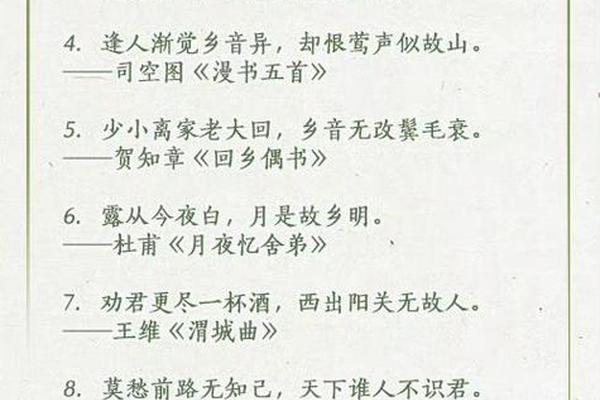 4. 逢人渐觉乡音异，却恨莺声似故山。
——司空图《漫书五首》
5. 少小离家老大回，乡音无改鬓毛衰。
——贺知章《回乡偶书》
6. 露从今夜白，月是故乡明。
——杜甫《月夜忆舍弟》
7. 劝君更尽一杯酒，西出阳关无故人。
——王维《渭城曲》
8. 莫愁前路无知己，天下谁人不识君。